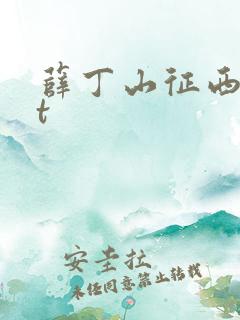 薛丁山征西
t
安圭拉
未经同意禁止转载